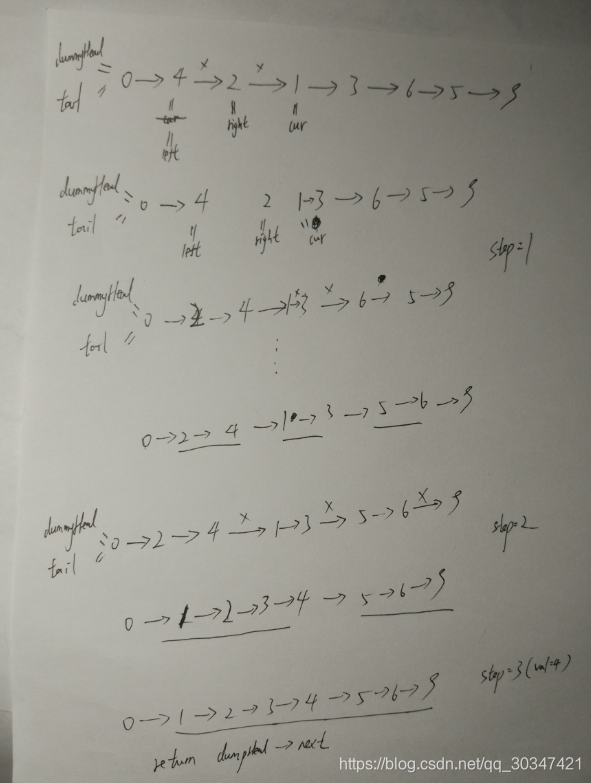 dummyHead
tail
0 → 4 → 2 → 1 → 3 → 6 → 5 → 9
left right cur
dummyHead
tail
0 → 4 2 1→3 → 6 → 5 → 9
left right cur
step=1
dummyHead
tail
0 → 2 → 4 → 1→3 → 6 → 5 → 9
0 → 2 → 4 → 1 → 3 → 5 → 6 → 9
dummyHead
tail
0 → 2 → 4 → 1 → 3 → 5 → 6 → 9
step=2
0 → 1 → 2 → 3 → 4 → 5 → 6 → 9
step=3 (val=4)
0 → 1 → 2 → 3 → 4 → 5 → 6 → 9
return → next
https://blog.csdn.net/qq_30347421